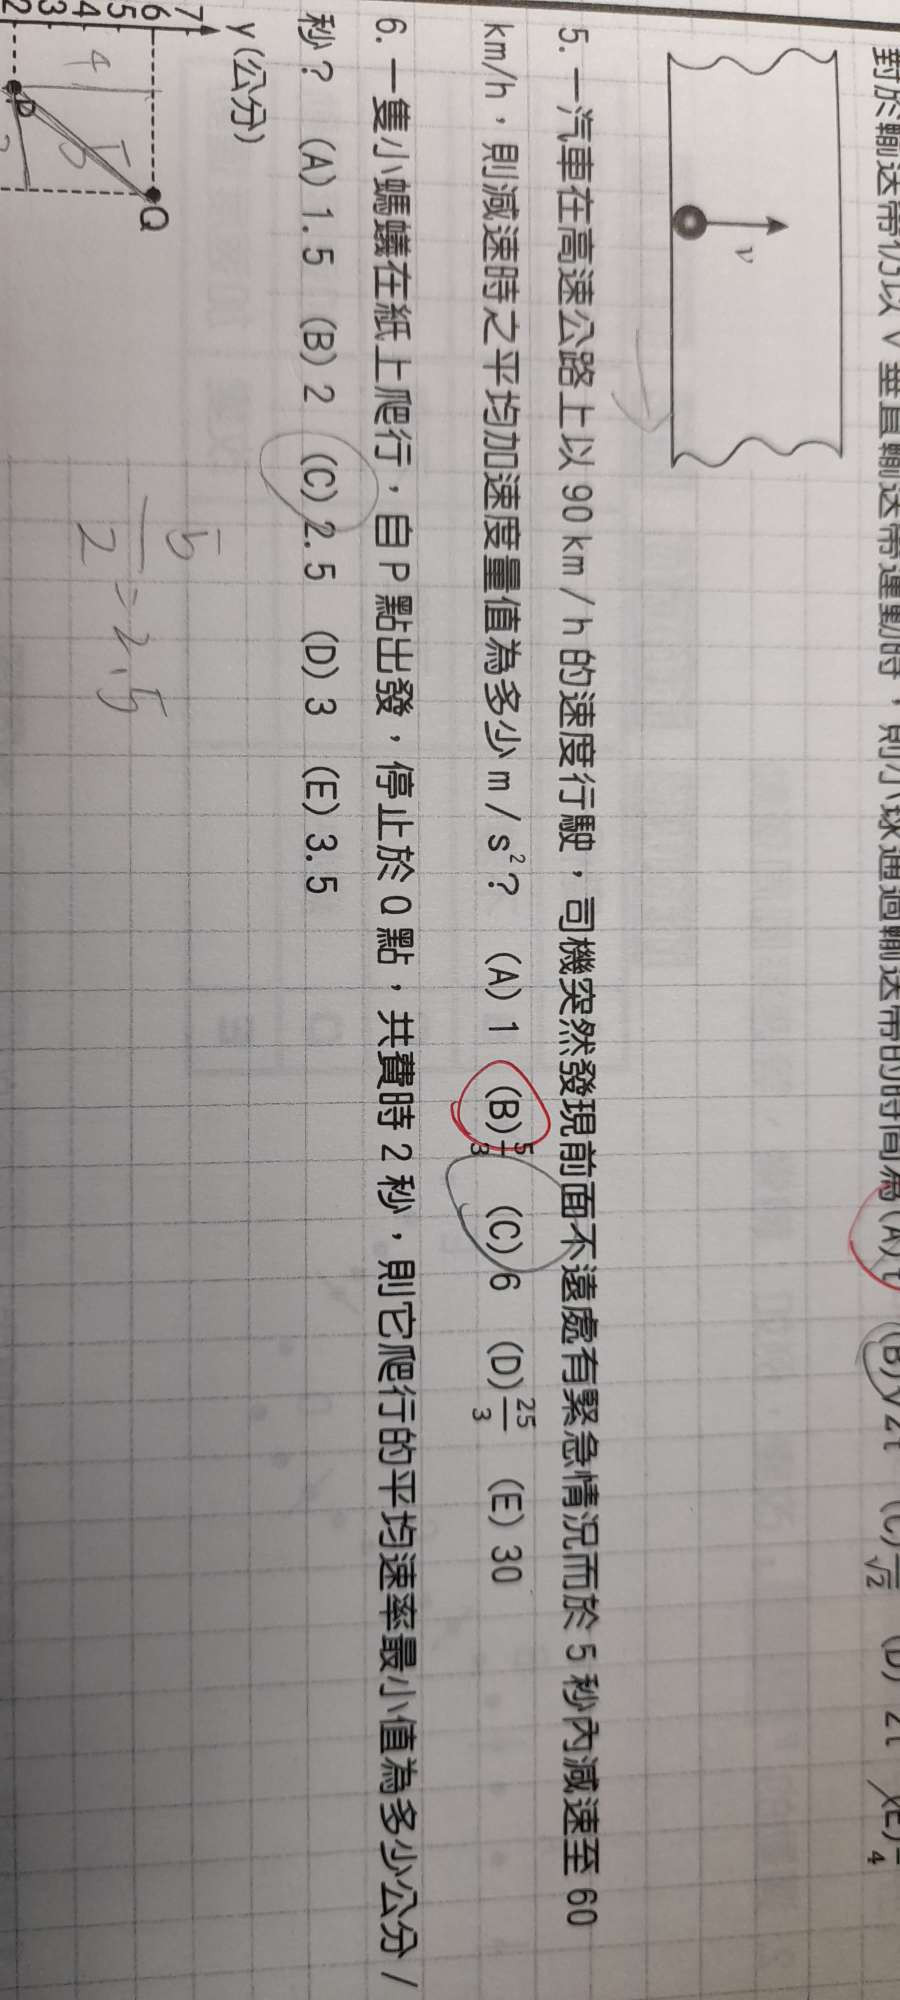 對於輸送帶仍以 V 垂直輸送帶運動時，則小球通過輸送帶的時間為(A)t (B)√2t (C) √2 (D) 2t (E) 4
v
5. 一汽車在高速公路上以 90 km / h 的速度行駛，司機突然發現前面不遠處有緊急情況而於 5 秒內減速至 60
km/h，則減速時之平均加速度量值為多少 m / s²? (A) 1 (B) 5/3 (C) 6 (D) 25/3 (E) 30
6. 一隻小螞蟻在紙上爬行，自 P 點出發，停止於 Q 點，共費時 2 秒，則它爬行的平均速率最小值為多少公分 /
秒? (A) 1.5 (B) 2 (C) 2.5 (D) 3 (E) 3.5
y (公分)
7
6 Q
5
4
3
2 P
4
5
5/2=2.5